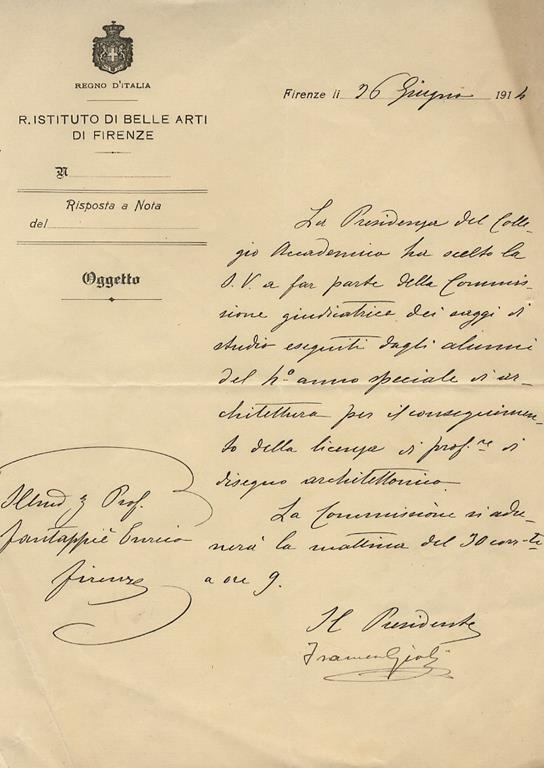 REGNO D'ITALIA
R. ISTITUTO DI BELLE ARTI
DI FIRENZE
N
Risposta a Nota
del
Oggetto
Firenze li 26 Giugno 1914
La Presidenza del Colle-
gio Accademico ha scelto la
S. V. a far parte della Commis-
sione giudicatrice dei saggi di
studio eseguiti dagli alunni
del 4º anno speciale di ar-
chitettura per il conseguimen-
to della licenza di prof.re di
disegno architettonico.
La Commissione si adu-
nerà la mattina del 30 corr.te
a ore 9.
Il Presidente
Francesco Gioli
Illmo Sig. Prof.
Fantappiè Enrico
Firenze